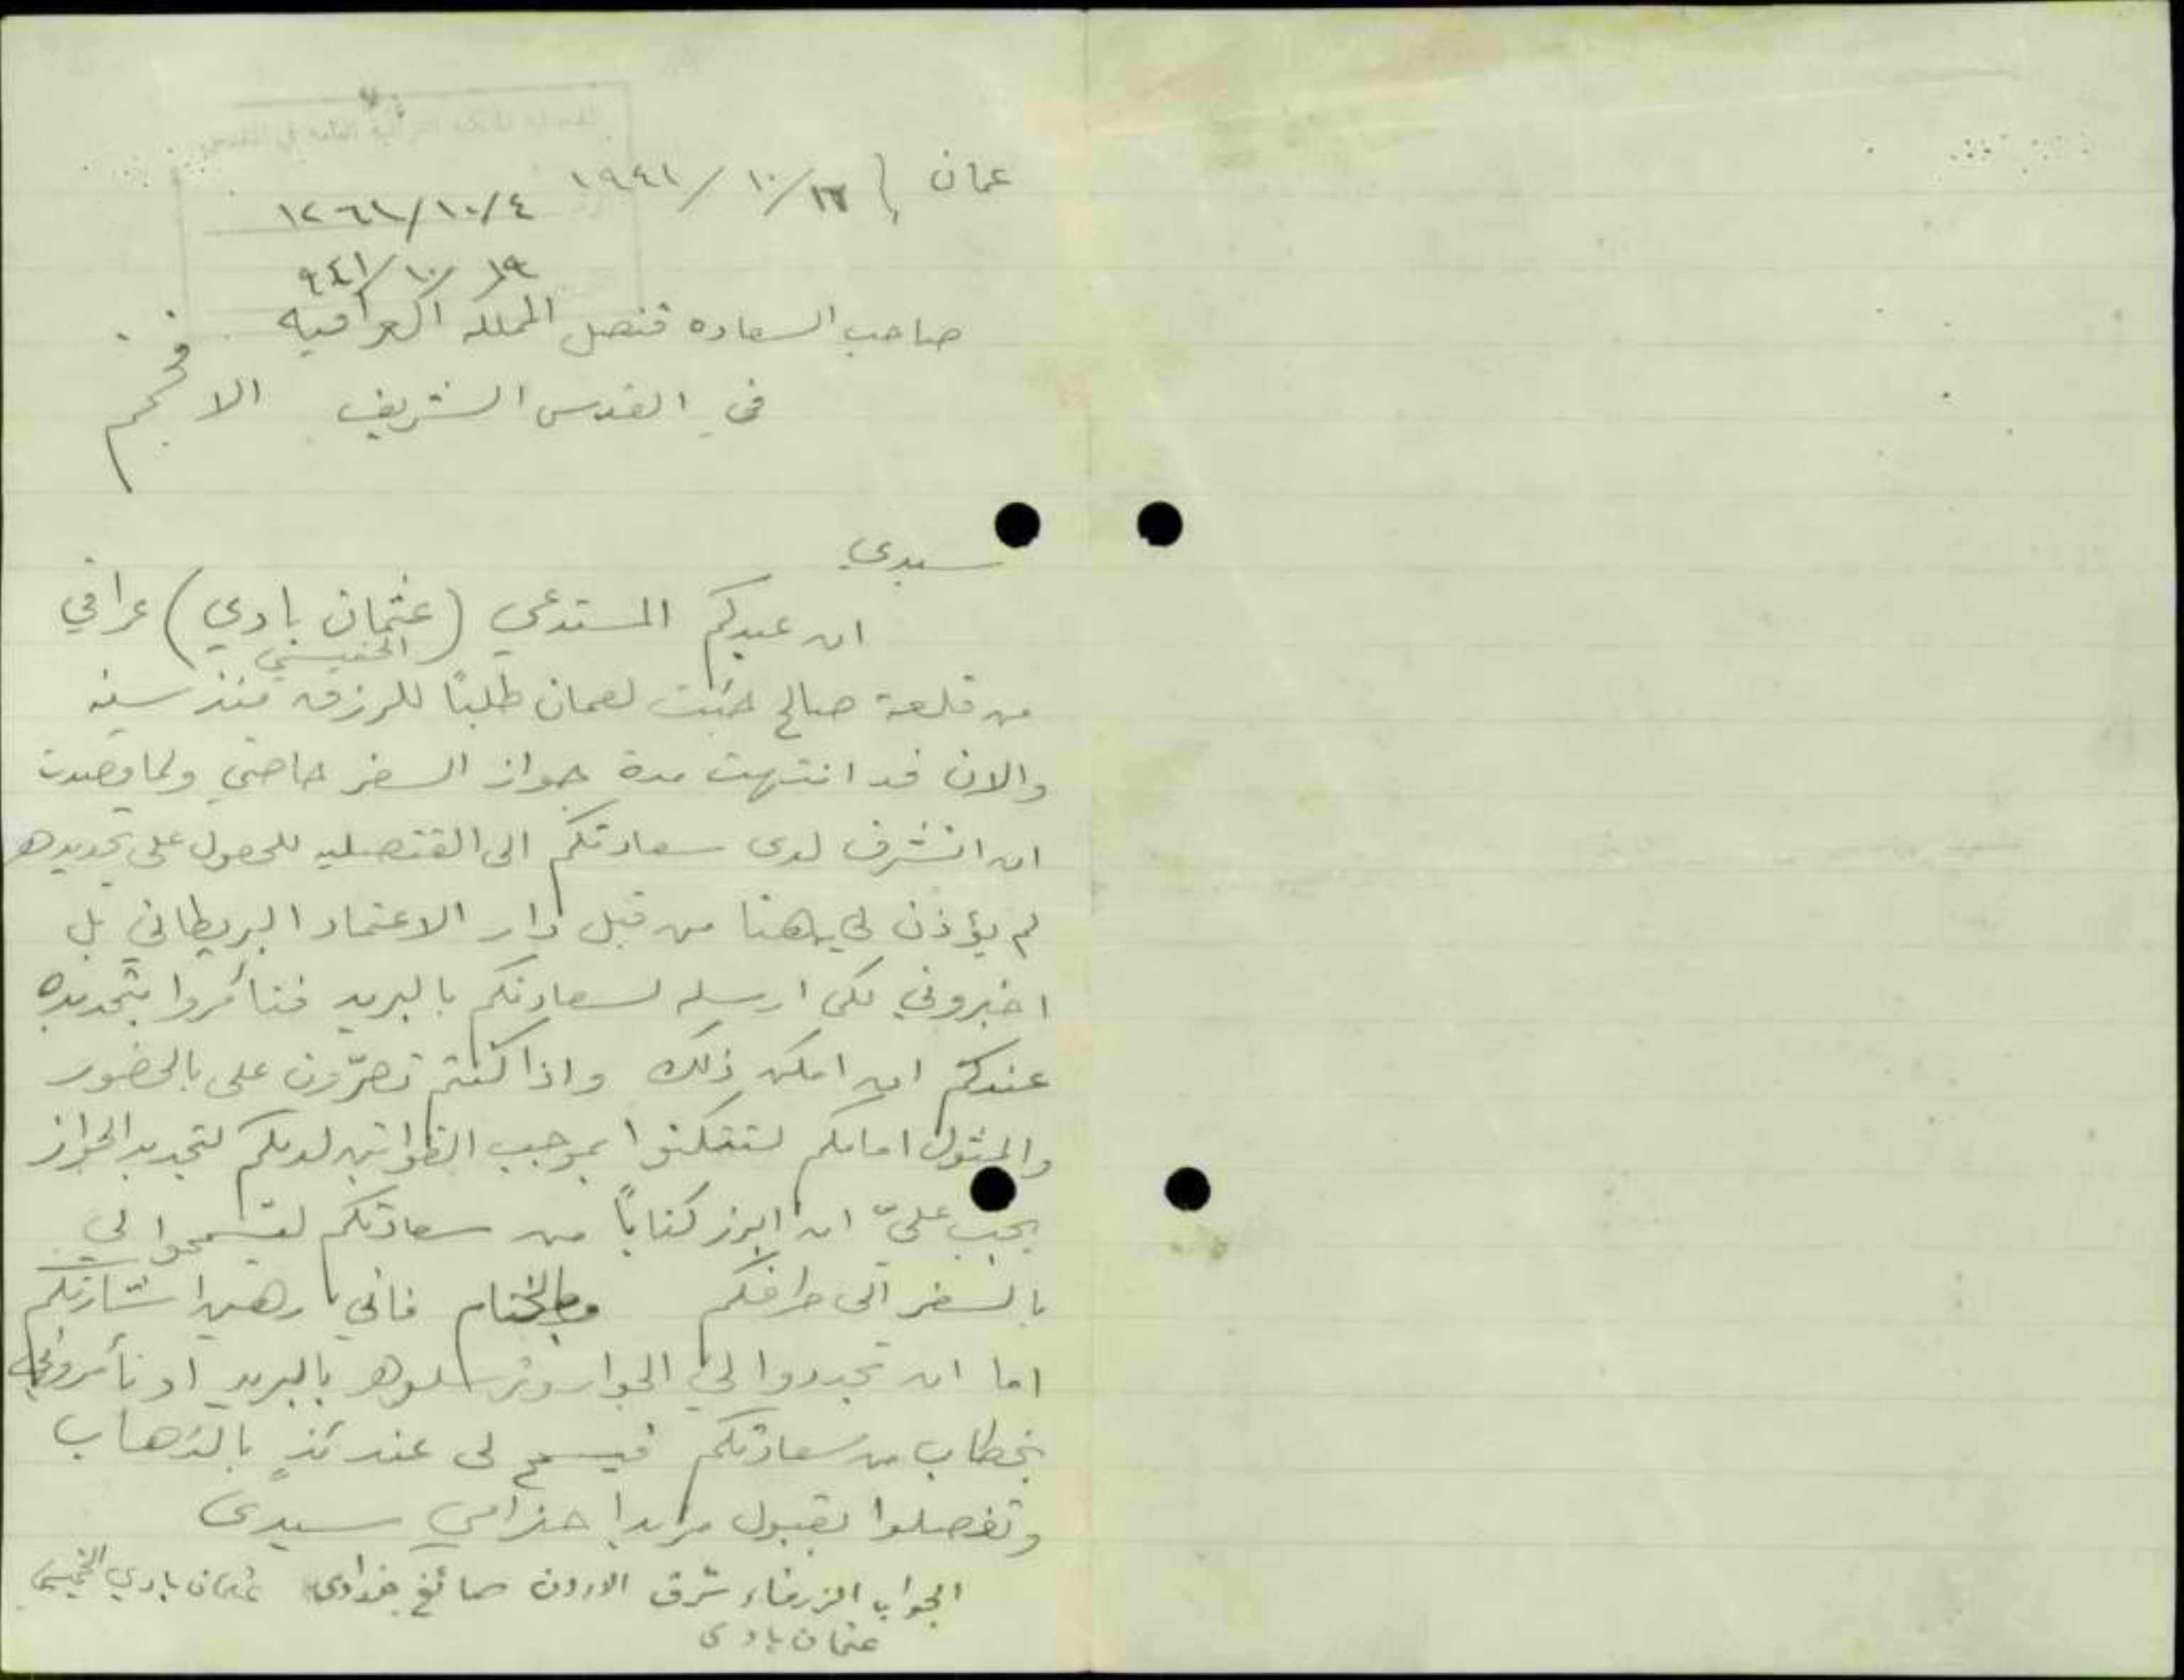 القنصلية الملكية العراقية العامة في القدس
عمان ١٦/١٠/١٩٤١
١٢٦١/١٠/٤
١٩/١٠/٩٤١
صاحب السعاده قنصل المملكه العراقيه
في القدس الشريف الافخم
سيدي
ان عبدكم المستدعي (عثمان بادي) عراقي
من قلعة صالح جئت لعمان طلبًا للرزق منذ سنه
والان قد انتهت مدة جواز السفر خاصتي ولما قصدت
ان اتشرف لدى سعادتكم الى القنصليه للحصول على تجديده
لم يؤذن لي هنا من قبل دار الاعتماد البريطاني بل
اخبروني لكي ارسله لسعادتكم بالبريد فتأمروا بتجديده
عندكم ان امكن ذلك واذا كنتم تصرّون على بالحضور
والمثول امامكم لتتمكنوا بموجب القوانين لديكم لتجديد الجواز
يجب عليّ ان ابرز كتابًا من سعادتكم ليسمحوا لي
بالسفر الى طرفكم وبالختام فاني رهين اشارتكم
اما ان تجددوا لي الجواز وترسلوه بالبريد او تأمروني
بخطاب من سعادتكم فيسمح لى عندئذٍ بالذهاب
وتفضلوا بقبول مزيد احترامي سيدى
الجواب الزرقاء شرق الاردن صائغ بغدادى عثمان بادي
عثمان بادى